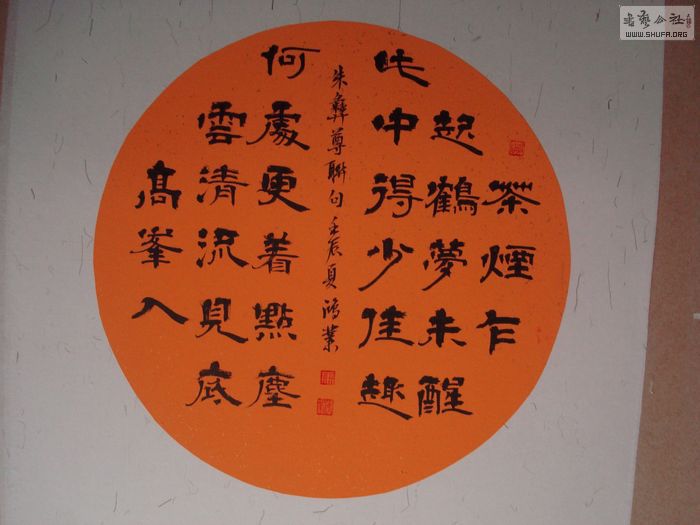 茶煙乍
起鶴夢未醒
此中得少佳趣
高峯入
雲清流見底
何處更着點塵
朱彝尊聯句壬辰夏鴻業
書藝公社
WWW.SHUFA.ORG